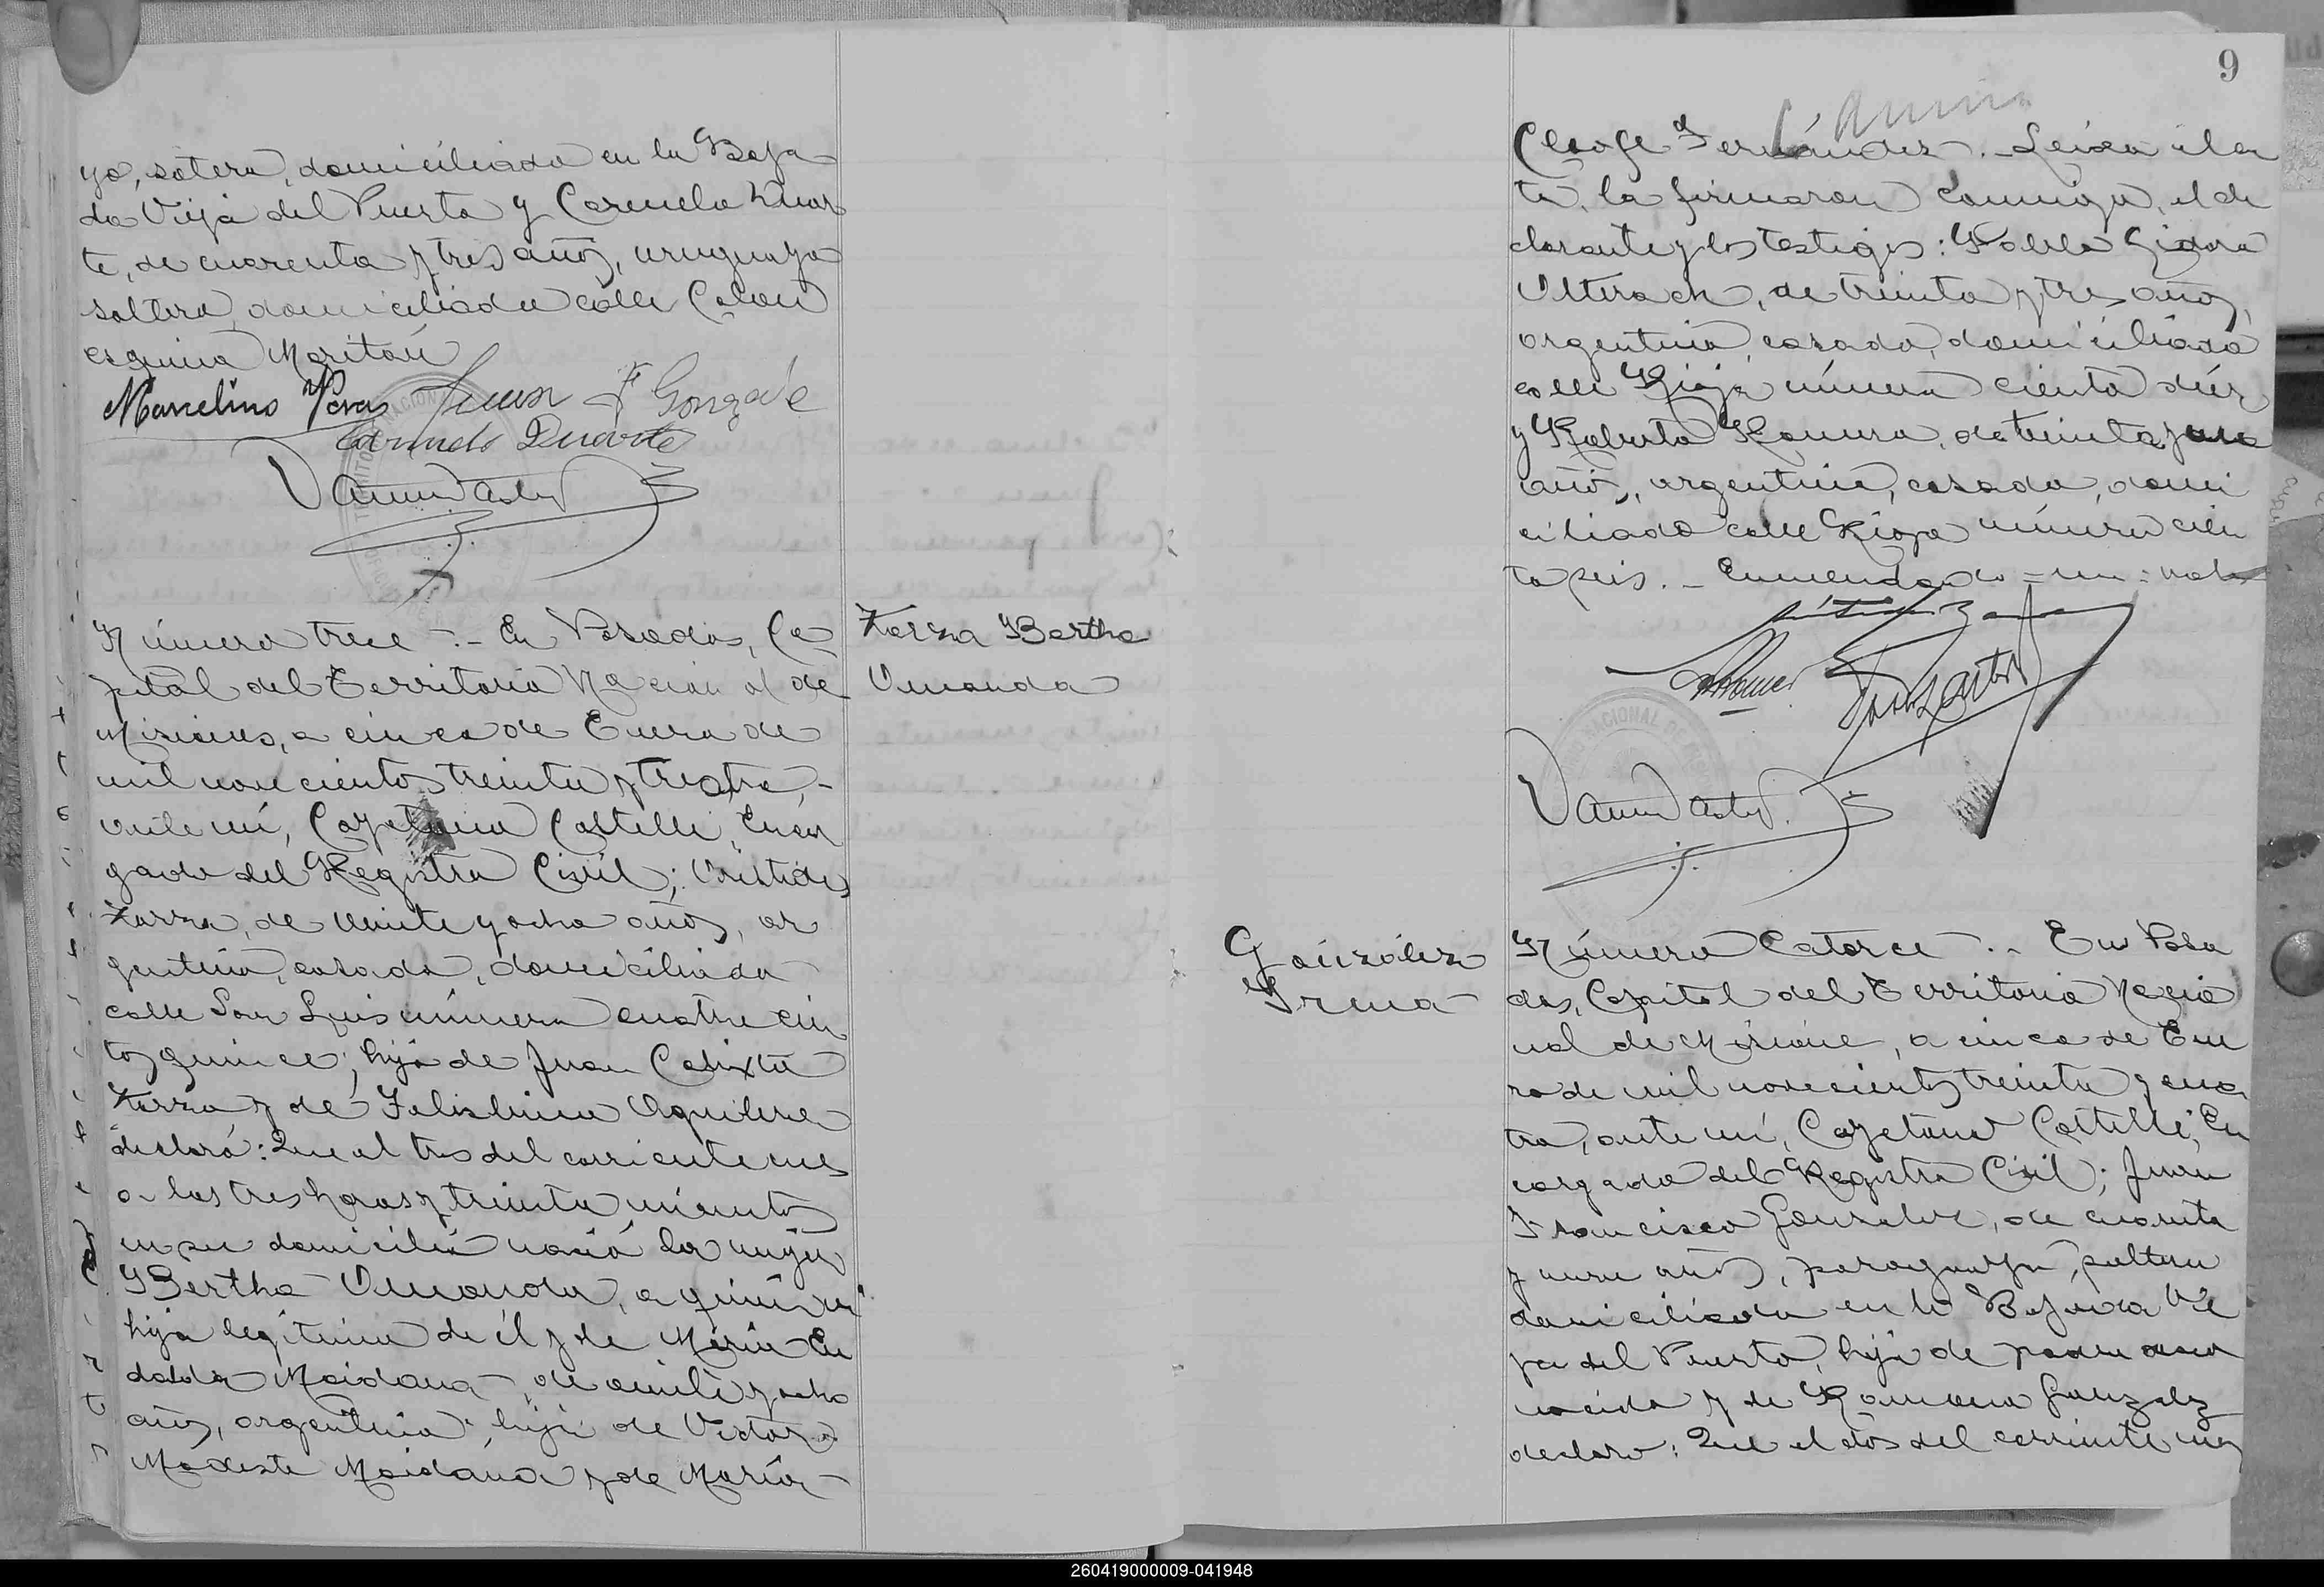 yo, soltero, domiciliado en la Baja
da Vieja del Puerto y Carmelo Duar
te, de cuarenta y tres años, uruguayo
soltero, domiciliado calle Colon
esquina Maritán
Marcelino Vera Juan F Gonzale
Carmelo Duarte
Número trece .- En Posadas, Ca
pital del Territorio Nacional de
Misiones, a cinco de Enero de
mil novecientos treinta y
ante mí, Cayetano Castelli, Encar
gado del Registro Civil; Aristides
Zarza, de veinte y ocho años, ar
gentino, casado, domiciliado
calle San Luis número cuatrocien
tos quince, hijo de Juan Calixto
Zarza y de Aguilera
declaró: Que el tres del corriente mes
a las tres horas y treinta minutos
en su domicilio nació la mujer
Bertha Amanda, a quien vi
hija legítima de él y de María
Maidana, de veinte y ocho
años, argentina, hija de Victor
Modesto Maidana y de María
Zarza Bertha
Amanda
9
Cleofe Fernández.- Leida el ac
ta, la firmaron conmigo, el de
clarante y los testigos: Pablo
de treinta y tres años,
argentino, casado, domiciliado
calle Rioja número ciento diez
y Roberto Romero, de treinta y un
años, argentino, casado, domi
ciliado calle Rioja número cien
to seis.- Enmendado = un = vale
González
Irma
Número Catorce .- En Posa
das, Capital del Territorio Nacio
nal de Misiones, a cinco de Ene
ro de mil novecientos treinta y cua
tro, ante mí, Cayetano Castelli, En
cargado del Registro Civil; Juan
Francisco Gonzalez, de cuarenta
y nueve años, paraguayo, soltero
domiciliado en la Bajada Vie
ja del Puerto, hijo de padre desco
nocido y de Romana Gonzalez
declaro: Que el dos del corriente mes
260419000009-041948